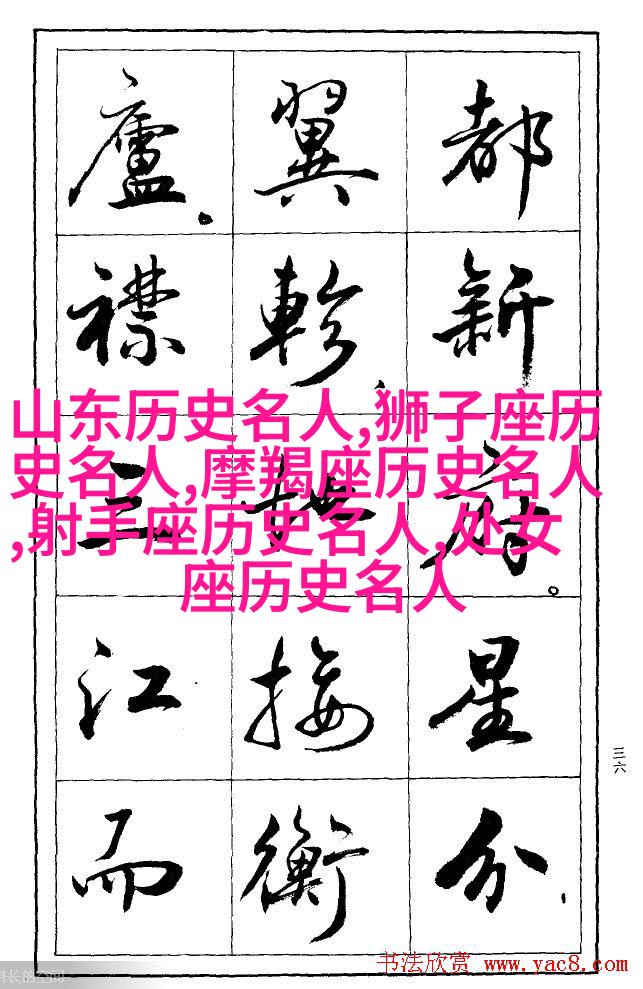 都新府。星分、
翼軫、地接衡
廬。襟三江而
山东历史名人,狮子座历
史名人,摩羯座历史名人
,射手座历史名人,处女
座历史名人
三六
书法欣赏 www.yac8.com
长的空间